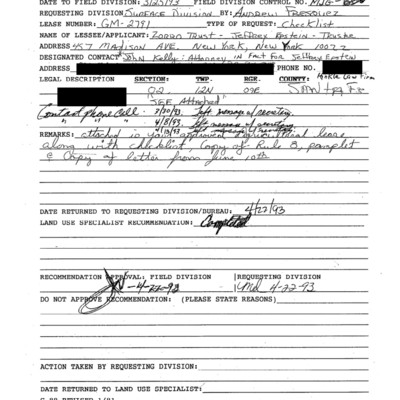 DATE TO FIELD DIVISION: 3/25/93 FIELD DIVISION CONTROL NO.
REQUESTING DIVISION: SURFACE Division BY: ANDREW
LEASE NUMBER: GM-2791 TYPE OF REQUEST: Checklist
NAME OF LESSEE/APPLICANT: ZORRO TRUST - Jeffrey Epstein - Trustee
ADDRESS 457 Madison AVE. New York, New York 10022
DESIGNATED CONTACT John Kelly: Attorney in Fact For Jeffrey Epstein
ADDRESS PHONE NO. Law Firm
LEGAL DESCRIPTION SECTION: TWP. RGE. COUNTY:
12N 09E
SEE Attached
Contact phone Call - 3/30/93, left message w/ secretary.
" " " 4/8/93 left message w/ secretary
4/13/93 left message w/ secretary
REMARKS: attached is your agricultural lease
along with checklist, Copy of Rule 8, pamplet
& Copy of letter from June 10th
DATE RETURNED TO REQUESTING DIVISION/BUREAU: 4/22/93
LAND USE SPECIALIST RECOMMENDATION: Completed
RECOMMENDATION APPROVAL: FIELD DIVISION REQUESTING DIVISION
-4-22-93 4-22-93
DO NOT APPROVE RECOMMENDATION: (PLEASE STATE REASONS)
ACTION TAKEN BY REQUESTING DIVISION:
DATE RETURNED TO LAND USE SPECIALIST: